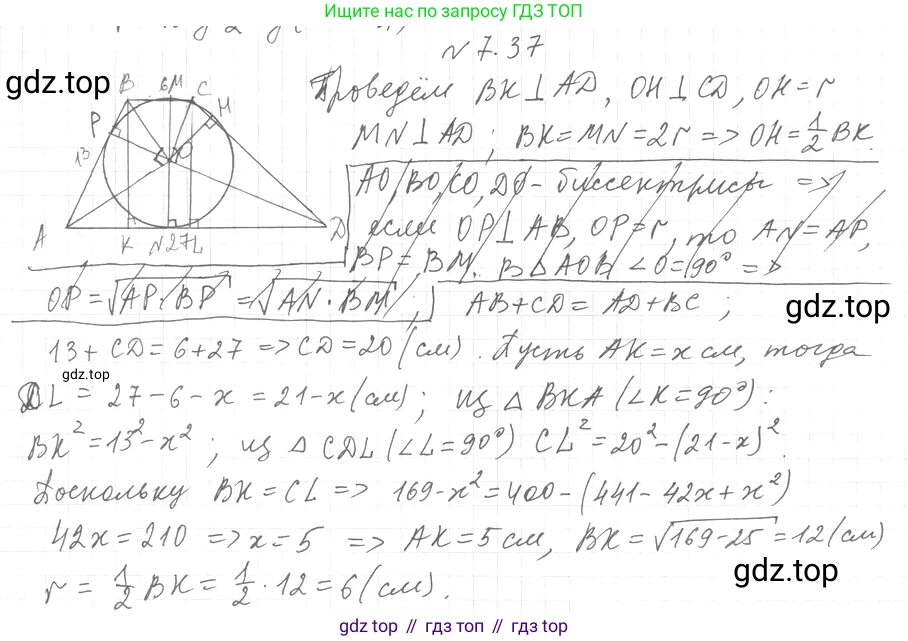 Ищите нас по запросу ГДЗ ТОП
N 7.37
gdz.top
B 6 M C
P H
13 O
A K N 27 L D
Проведём BK⊥AD, OH⊥CD, OH=r
MN⊥AD; BK=MN=2r => OH=1/2 BK.
AO, BO, CO, DO - биссектрисы =>
если OP⊥AB, OP=r, то AN=AP,
BP=BM. В △AOB ∠O=90° =>
OP=√AP·BP=√AN·BM;
AB+CD=AD+BC;
gdz.top
13+CD=6+27 => CD=20(см). Пусть AK=x см, тогда
gdz.top
DL=27-6-x=21-x(см); из △BKA (∠K=90°):
BK²=13²-x²; из △CDL (∠L=90°) CL²=20²-(21-x)².
Поскольку BK=CL => 169-x²=400-(441-42x+x²)
42x=210 => x=5 => AK=5см, BK=√169-25=12(см)
r=1/2 BK=1/2·12=6(см).
gdz.top
gdz.top // гдз топ // gdz.top